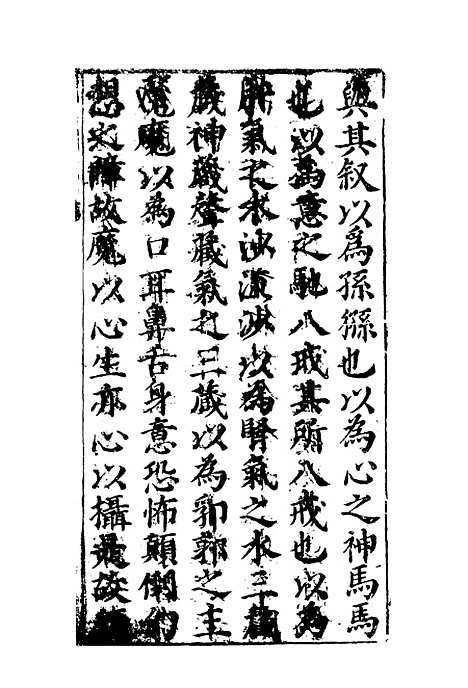 與其叙以爲孫猻也以為心之神馬馬
也以為意之馳八戒其所八戒也以為
肝氣之木沙流沙以為腎氣之水三藏
藏神藏聲藏氣之三藏以為郛郭之主
魔魔以為口耳鼻舌身意恐怖顛倒幻
想之障故魔以心生亦心以攝是故